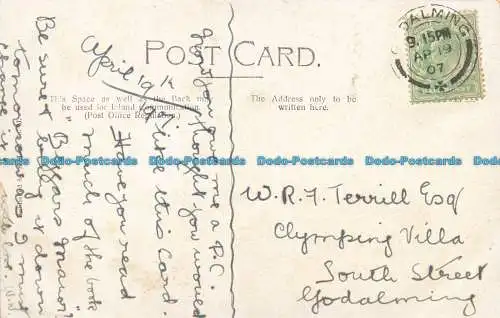 POST CARD.
This Space as well as the Back may
be used for Inland Communication.
(Post Office Regulation.)
The Address only to be
written here.
GODALMING
9.15PM
AP 19
07
W. R. T. Terrill Esq
Clymping Villa
South Street
Godalming
April 19th
Now you gave me a P.C.
I thought you would
like this card.
Have you read
much of the book
"Beggars Manor"
Be sure & bring it down
tomorrow as I must
Dodo-Postcards Dodo-Postcards Dodo-Postcards Dodo-Postcards Dodo-Postcards Dodo-Postcards